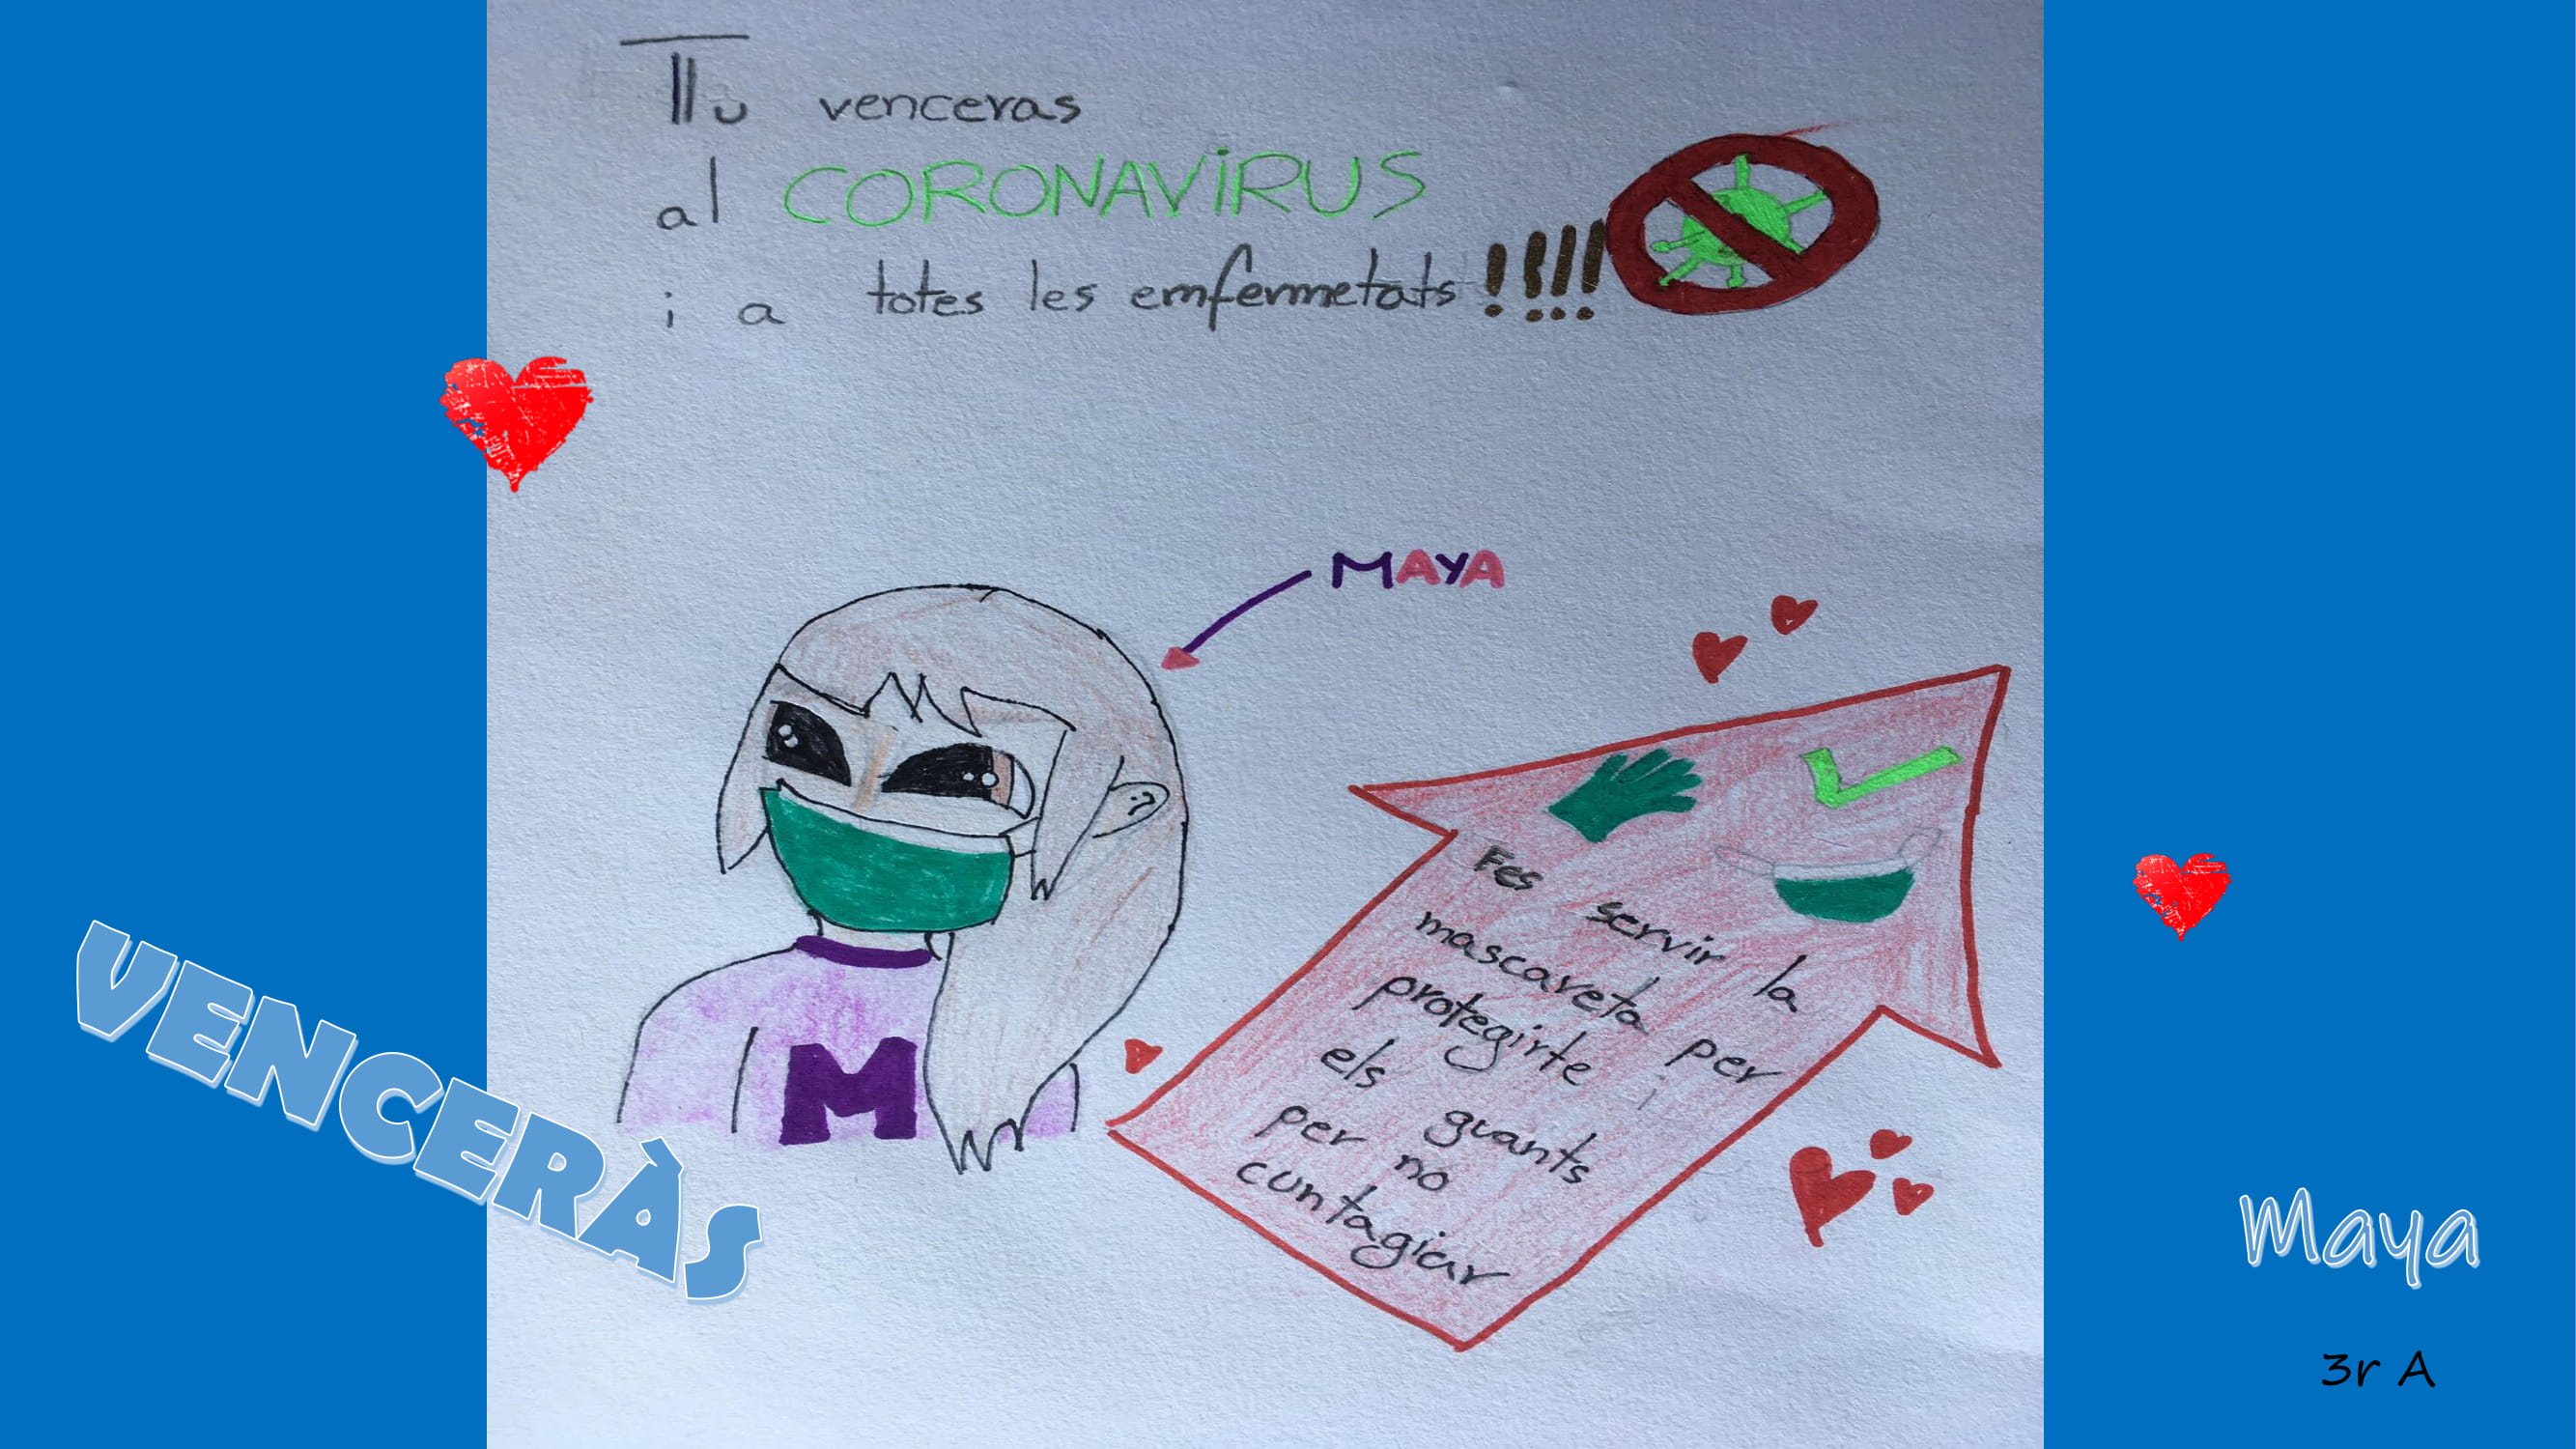 Tu venceras
al CORONAVIRUS
i a totes les emfermetats !!!!!
MAYA
Fes servir la
mascareta per
protegirte i
els guants
per no
cuntagiar
M
VENCERÀS
Maya
3r A